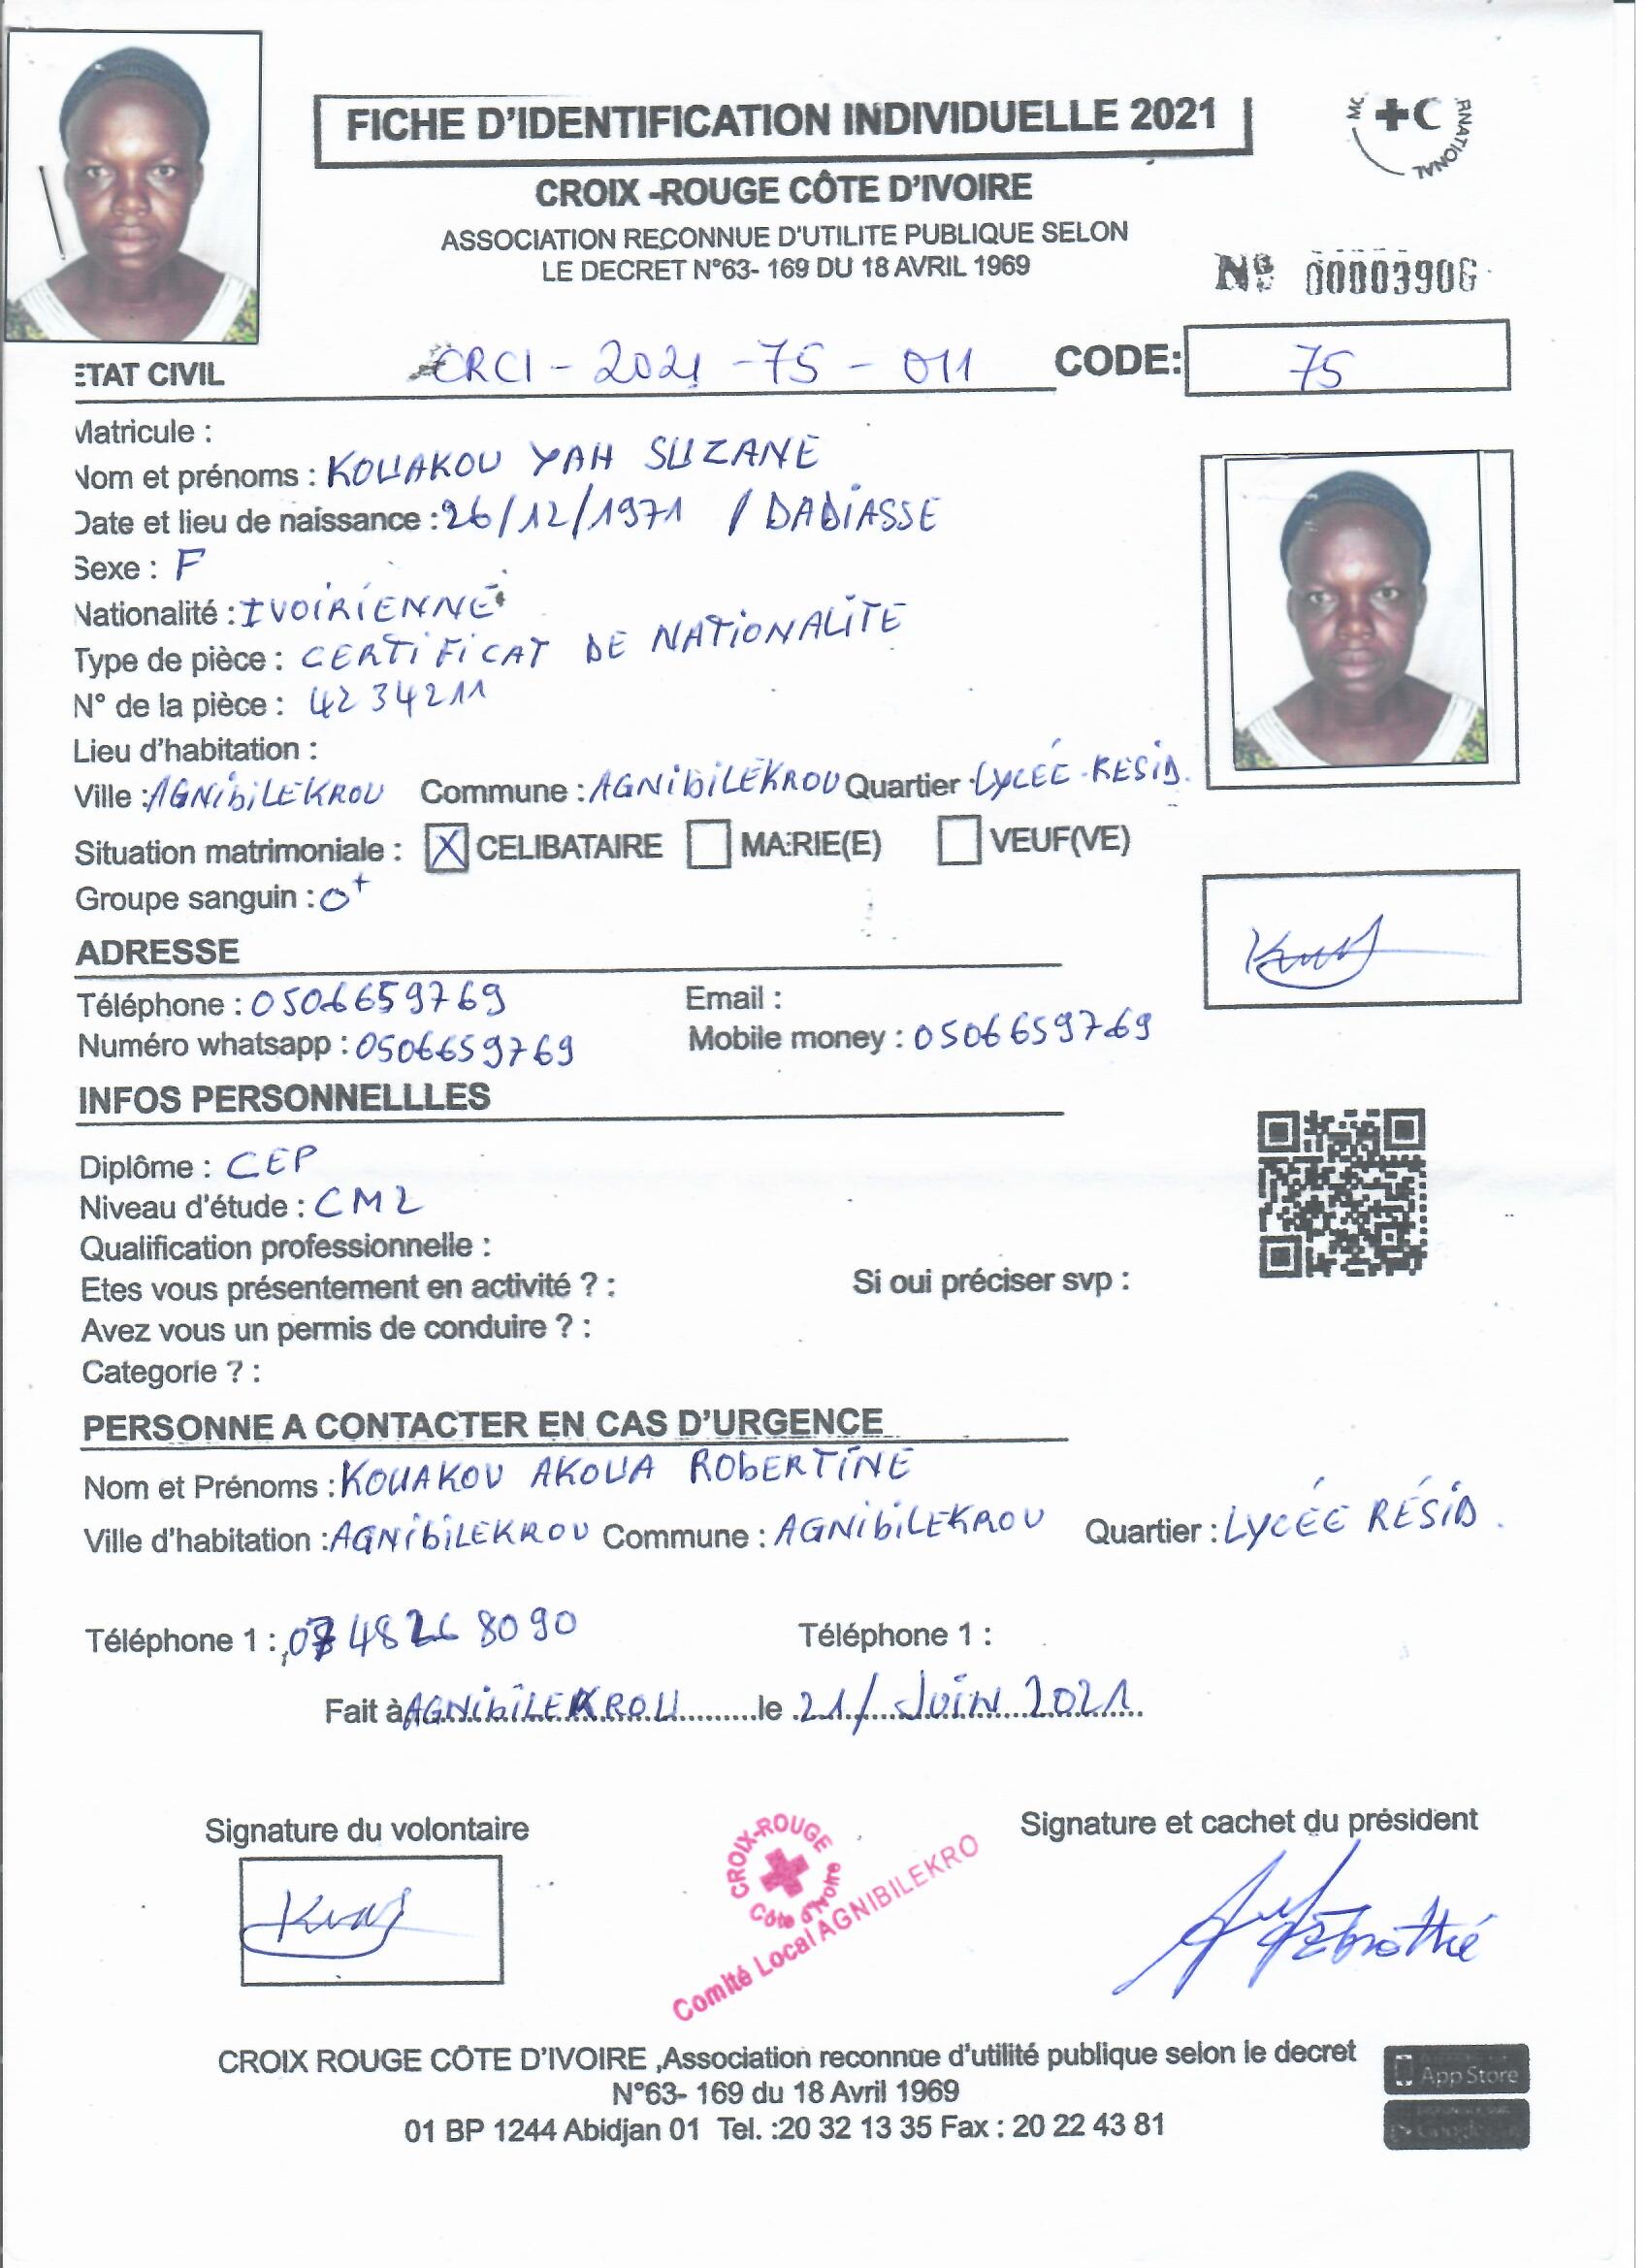 FICHE D'IDENTIFICATION INDIVIDUELLE 2021
CROIX -ROUGE CÔTE D'IVOIRE
ASSOCIATION RECONNUE D'UTILITE PUBLIQUE SELON
LE DECRET N°63- 169 DU 18 AVRIL 1969
N° 0000390G
ETAT CIVIL CRCI - 2021 - 75 - 011 CODE: 75
Matricule :
Nom et prénoms : KOUAKOU YAH SUZANE
Date et lieu de naissance : 26/12/1971 / DADIASSE
Sexe : F
Nationalité : IVOIRIENNE
Type de pièce : CERTIFICAT DE NATIONALITE
N° de la pièce : 4234211
Lieu d'habitation :
Ville : AGNIBILEKROU Commune : AGNIBILEKROU Quartier : LYCÉE RESID.
Situation matrimoniale : X CELIBATAIRE MARIE(E) VEUF(VE)
Groupe sanguin : O+
ADRESSE
Téléphone : 0506659769 Email :
Numéro whatsapp : 0506659769 Mobile money : 0506659769
INFOS PERSONNELLLES
Diplôme : CEP
Niveau d'étude : CM2
Qualification professionnelle :
Etes vous présentement en activité ? : Si oui préciser svp :
Avez vous un permis de conduire ? :
Categorie ? :
PERSONNE A CONTACTER EN CAS D'URGENCE
Nom et Prénoms : KOUAKOU AKOUA ROBERTINE
Ville d'habitation : AGNIBILEKROU Commune : AGNIBILEKROU Quartier : LYCÉE RÉSID.
Téléphone 1 : 0748268090 Téléphone 1 :
Fait à AGNIBILEKROU le 21/ JUIN 2021
Signature du volontaire Signature et cachet du président
CROIX-ROUGE
Côte d'Ivoire
Comité Local AGNIBILEKRO
CROIX ROUGE CÔTE D'IVOIRE ,Association reconnue d'utilité publique selon le decret
N°63- 169 du 18 Avril 1969
01 BP 1244 Abidjan 01 Tel. :20 32 13 35 Fax : 20 22 43 81
App Store